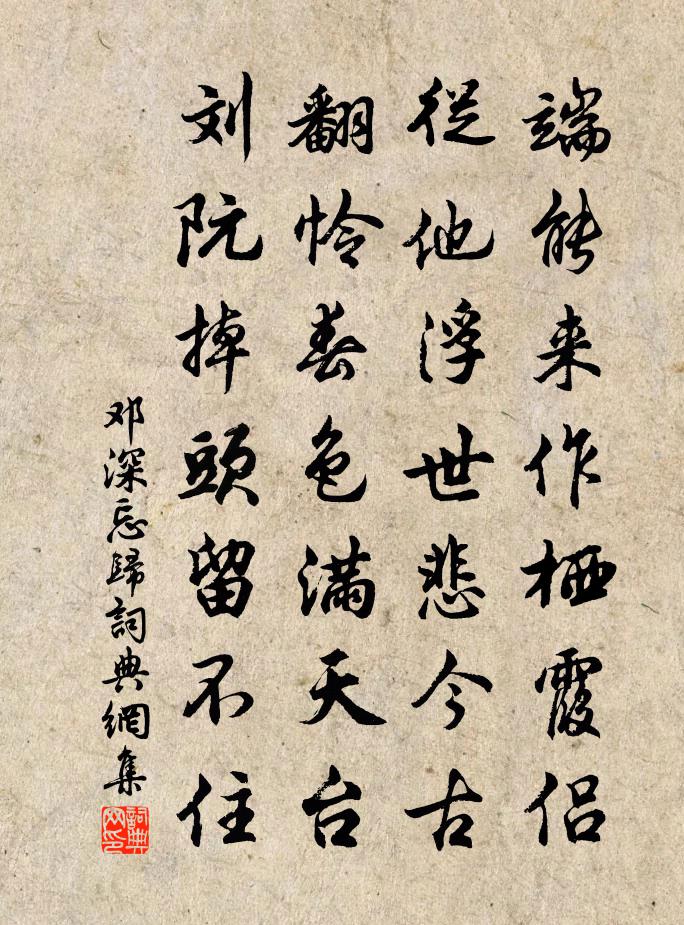 端能来作栖霞侣
從他浮世悲今古
翻怜春色满天台
刘阮掉頭留不住
邓深忘歸詞典網集
詞典网印